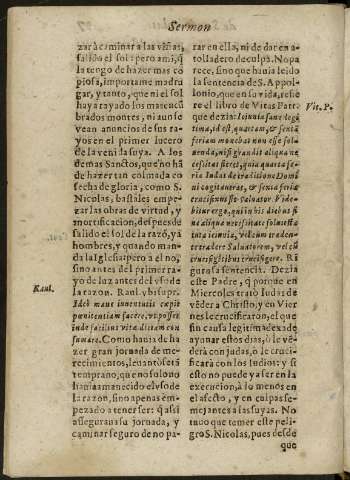 Sermon
zar à caminar a las viñas,
salido el sol: pero ami, q̃
la tengo de hazer mas co
piosa, importame madru
gar, y tanto, que ni el sol
hay a rayado los mas encũ
brados montes, ni aun se
vean anuncios de sus ra-
yos en el primer luzero
de la venida suya. A los
demas Sanctos, que no hã
de hazer tan colmada co
secha de gloria, como S.
Nicolas, bastales empe-
zar las obras de virtud, y
mortificacion, despues de
salido el sol de la razõ, yà
hombres, y quando man-
da la Iglesia: pero a el no,
sino antes del primer ra-
yo de luz antes del vso de
la razon. Raul. vbi supr.
Ideò maut inventutis cœpit
pœnitentiam facere, vt posset
inde facilius vitã dictam con
sumare. Como hauia de ha
zer gran jornada de me-
recimientos, leuantòse tã
temprano, que no solo no
hauia amanecido el vso de
la razon, sino apenas em-
pezado a tener ser: q̃ assi
assegurana su jornada, y
caminar seguro de no pa-
Raul.
rar en ella, ni de dar en a-
tolladero de culpa. No pa
rece, sino que hauia leido
la sentencia de S. Appol-
lonio, que en su vida, refie
re el libro de Vitas Patr.
que dezia: Ieiunia sanè legi
tima, id est, quartam, & sextã
feriam monebat non esse sol-
uenda, nisi grandis aliqua ne
cessitas fieret, quia quarta fe-
ria Iudas de traditione Domi
ni cogitauerat, & sexta feria
crucifixus est Saluator. Vide-
bitur ergo, qui in his diebus si
ne aliqua necessitate soluet sta
tuta ieiunia, vel cum traden-
te tradere Saluatorem, vel cũ
crucifigẽtibus crucifigere. Ri
gurosa sentencia. Dezia
este Padre, q̃ porque en
Miercoles tratò Iudas de
vẽder a Christo, y en Vier
nes le crucificaron, el que
sin causa legitima dexa de
ayunar estos dias, ò le vẽ-
derà con judas, ò le cruci-
ficarà con los Indios: y si
esto no puede ya ser en la
execucion, à lo menos en
el afecto, y en culpas se-
mejantes a las suyas. No
tuuo que temer este peli-
gro S. Nicolas, pues desde
que
Vit. P.